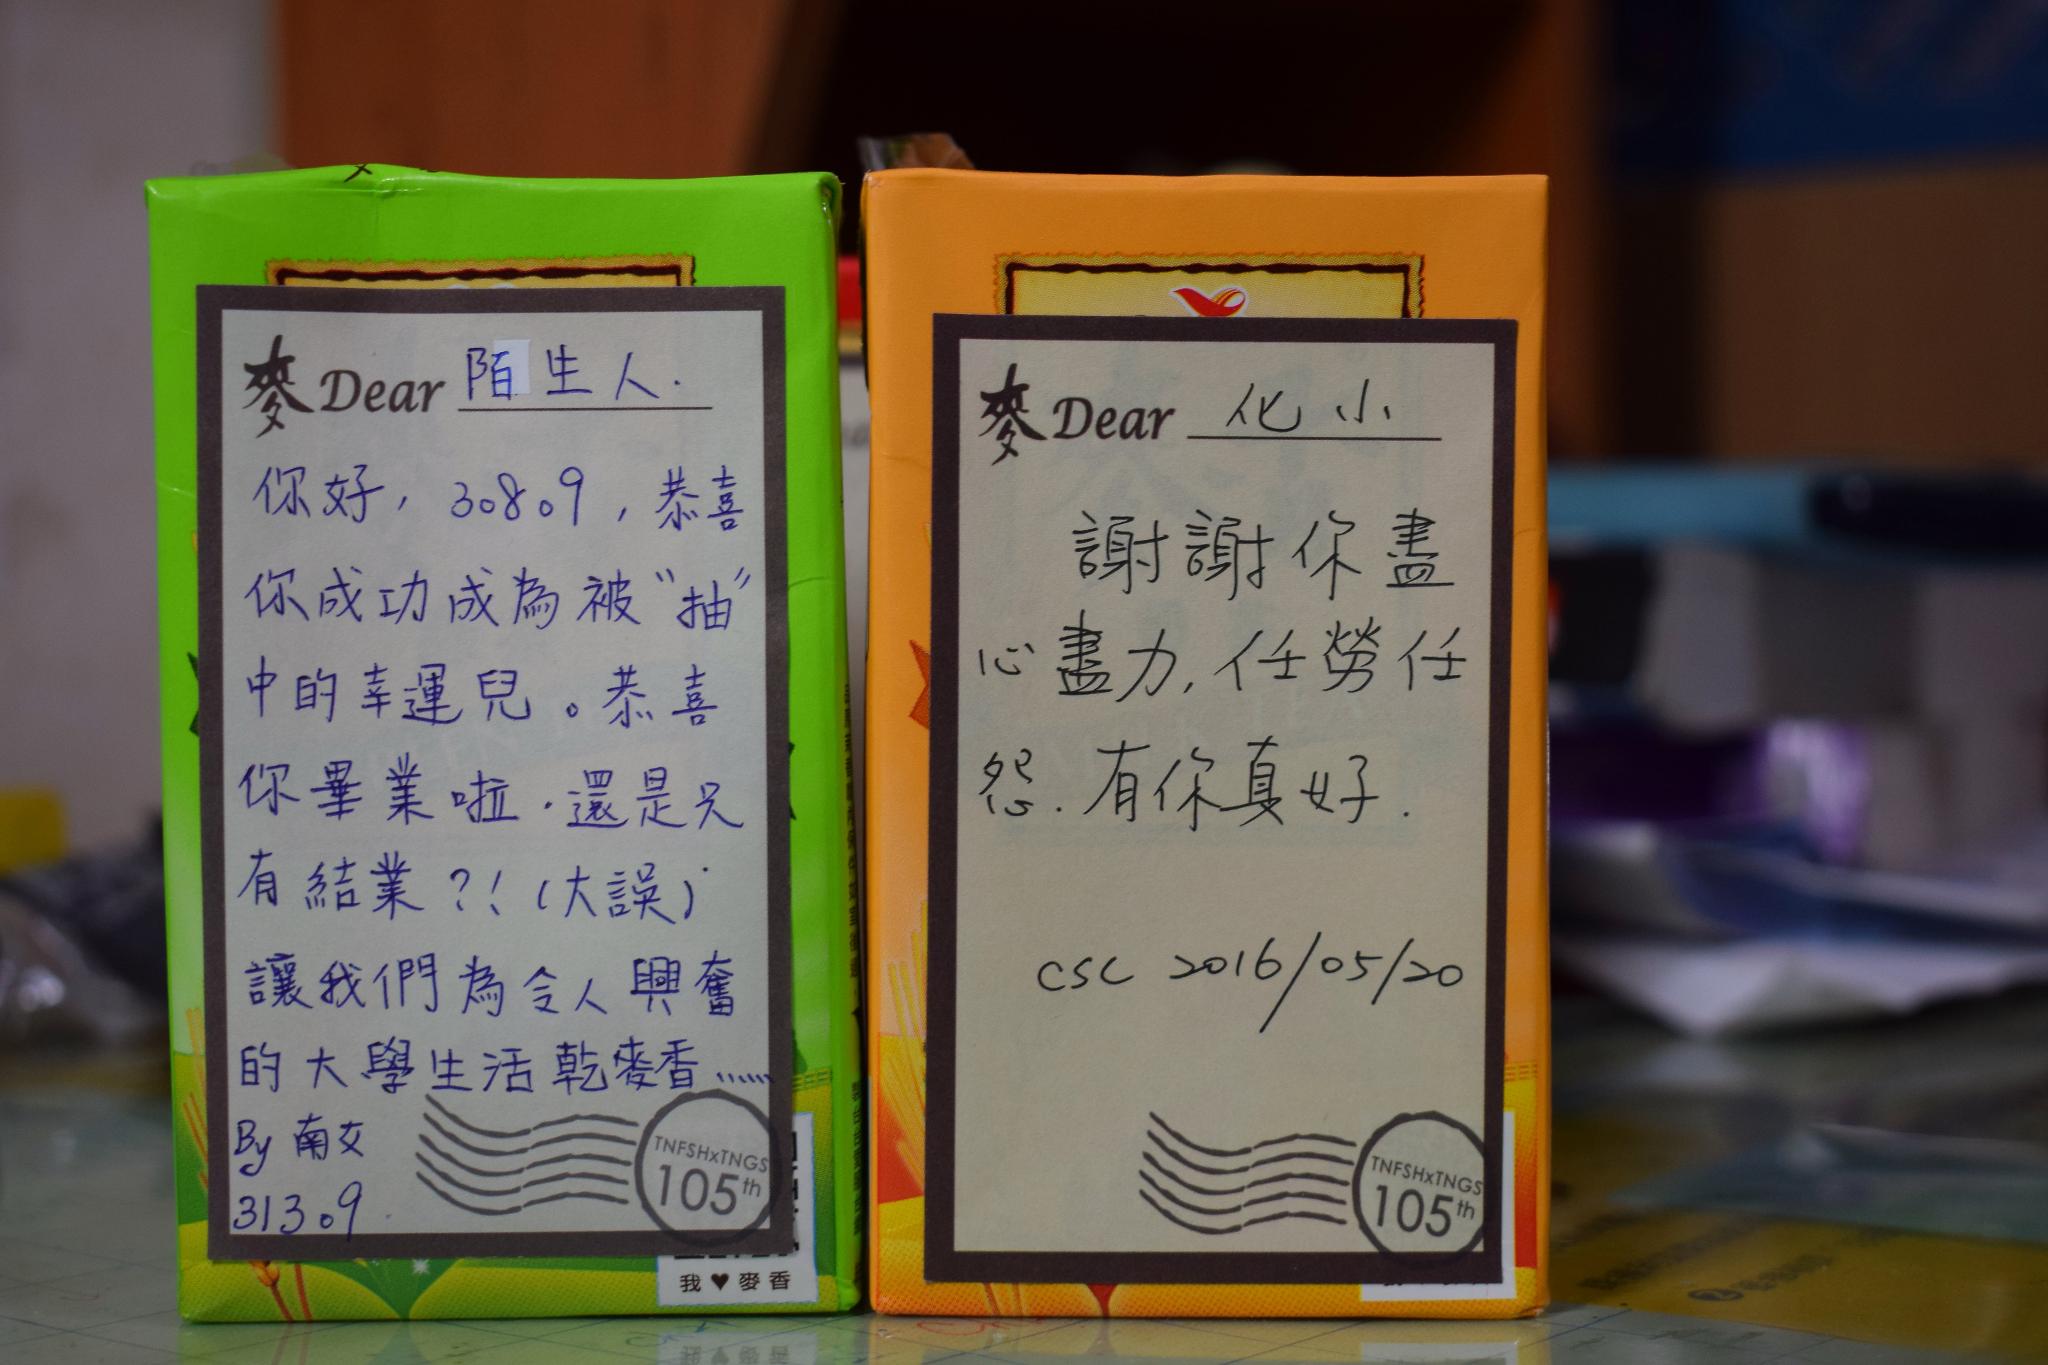 麥Dear 陌生人.
你好, 30809, 恭喜
你成功成為被"抽"
中的幸運兒。恭喜
你畢業啦.還是只
有結業?!(大誤)
讓我們為令人興奮
的大學生活乾麥香……
By 南女
31309.
TNFSHxTNGS
105th
我♥麥香
麥Dear 化小
謝謝你盡
心盡力,任勞任
怨.有你真好.
CSC 2016/05/20
TNFSHxTNGS
105th